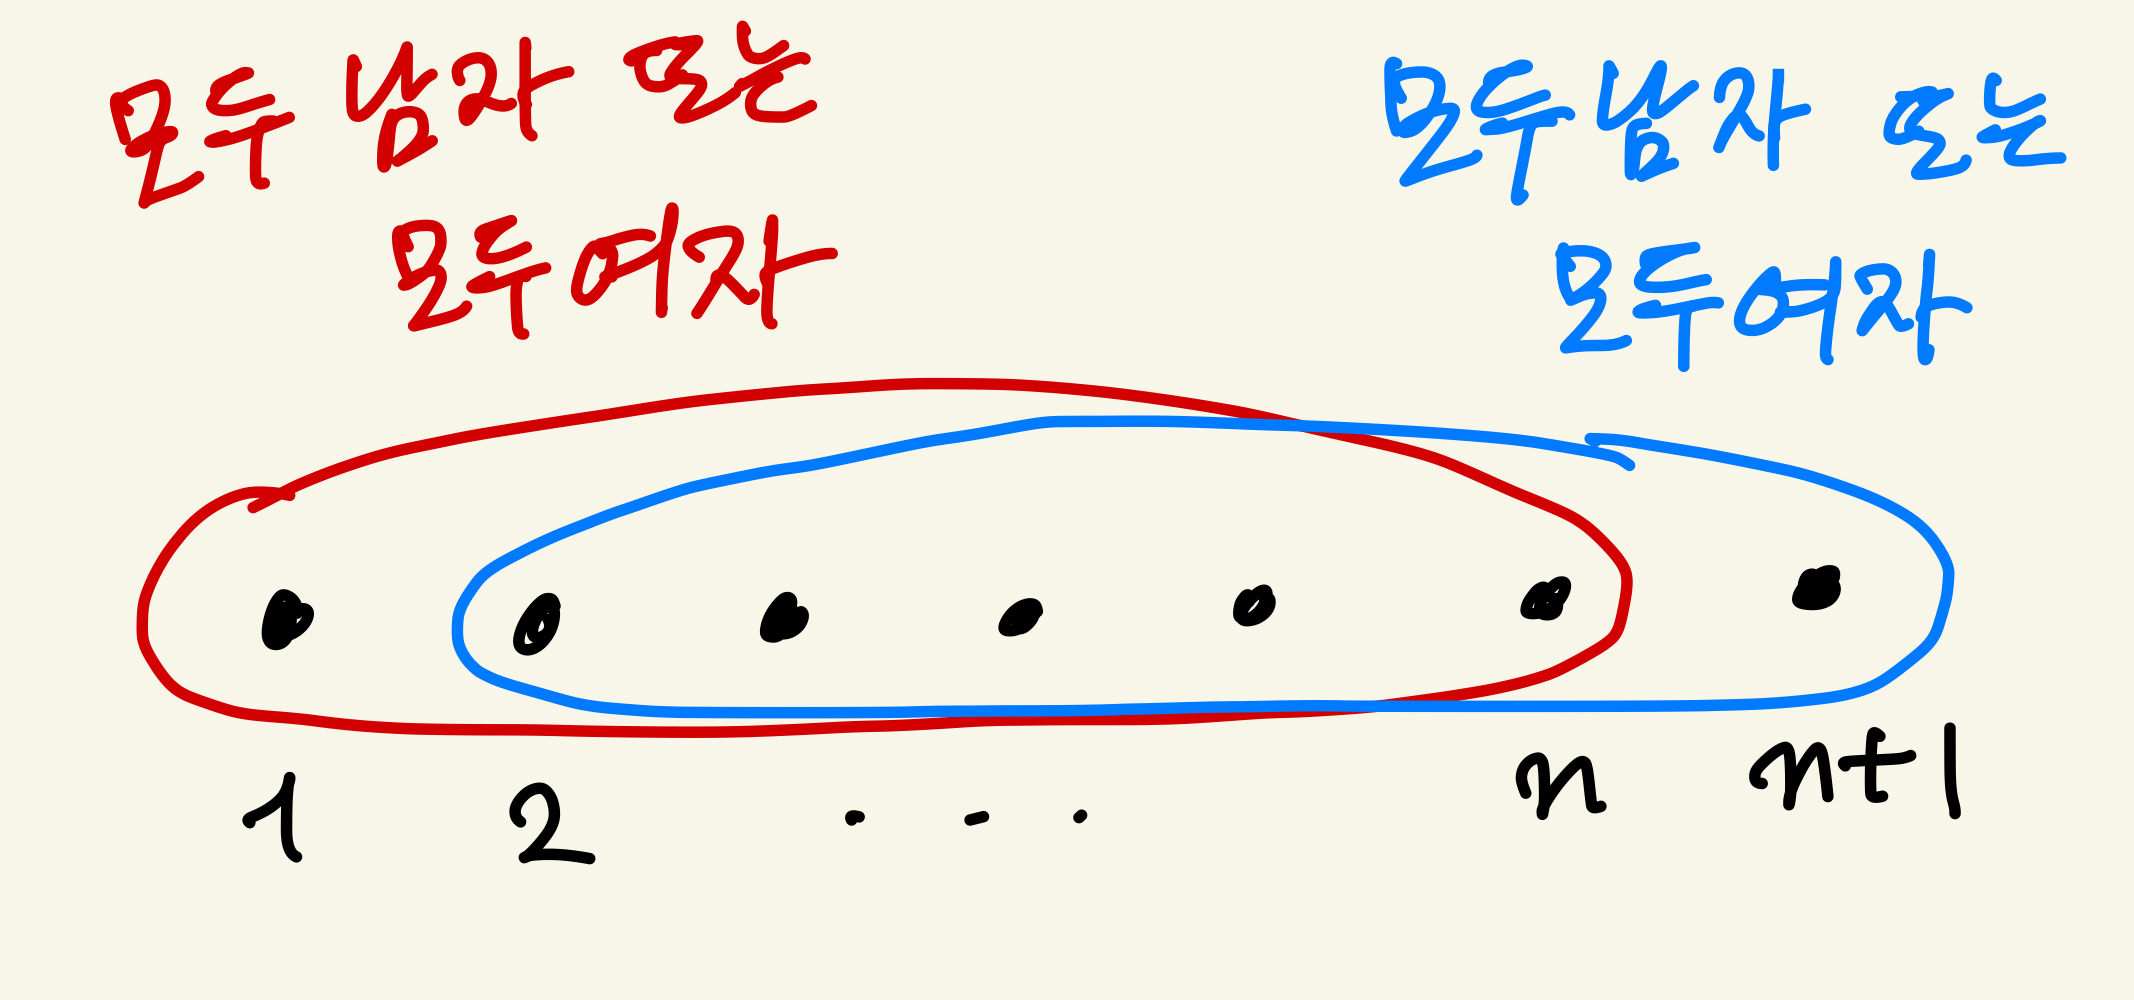 모두 남자 또는
모두 여자
모두 남자 또는
모두 여자
1 2 . . . n n+1